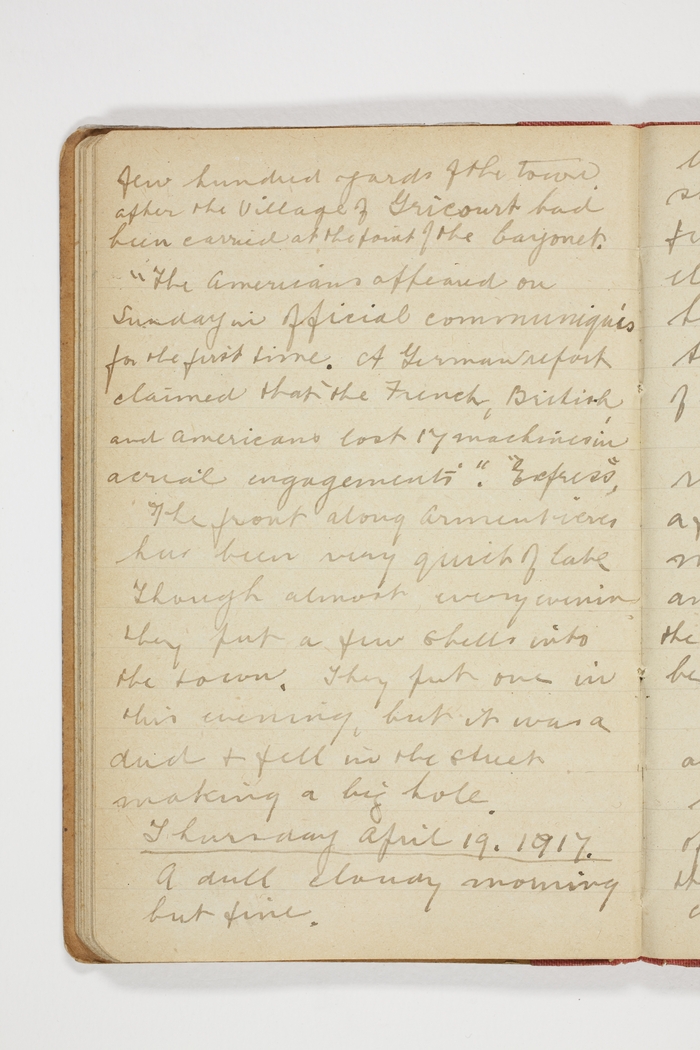 few hundred yards of the town
after the Village of Gricourt had
been carried at the point of the bayonet.
"The Americans appeared on
Sunday in official communiqués
for the first time. A German report
claimed that the French, British,
and Americans lost 17 machines in
aerial engagements". "Express",
The front along Armentieres
has been very quiet of late
Though almost every evening
they put a few shells into
the town. They put one in
this evening, but it was a
dud & fell in the street
making a big hole.
Thursday April 19. 1917.
A dull cloudy morning
but fine.
of
the
be